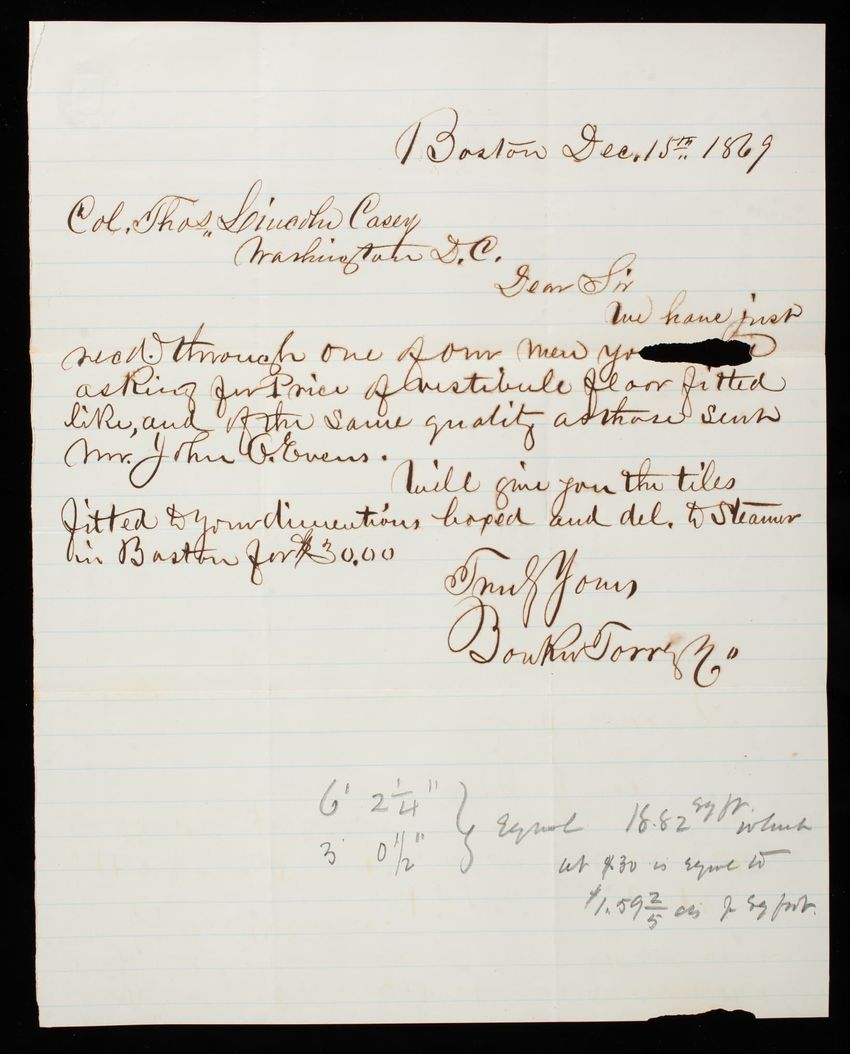 Boston Dec. 15th 1869
Col. Thos. Lincoln Casey
Washington D.C.
Dear Sir
We have just
recd. through one of our men yo
asking for Price of vestibule floor fitted
like, and of the same quality as those sent
Mr. John O. Evens.
Will give you the tiles
fitted to your dimentions boxed and del. to Steamer
in Boston for $30.00
Truly Yours
Torrey & Co
6' 2 1/4" } Equal 18.82 sq ft. which
3' 0 1/2"
at $30 is equal to
$1.59 2/5 cts p sq foot.